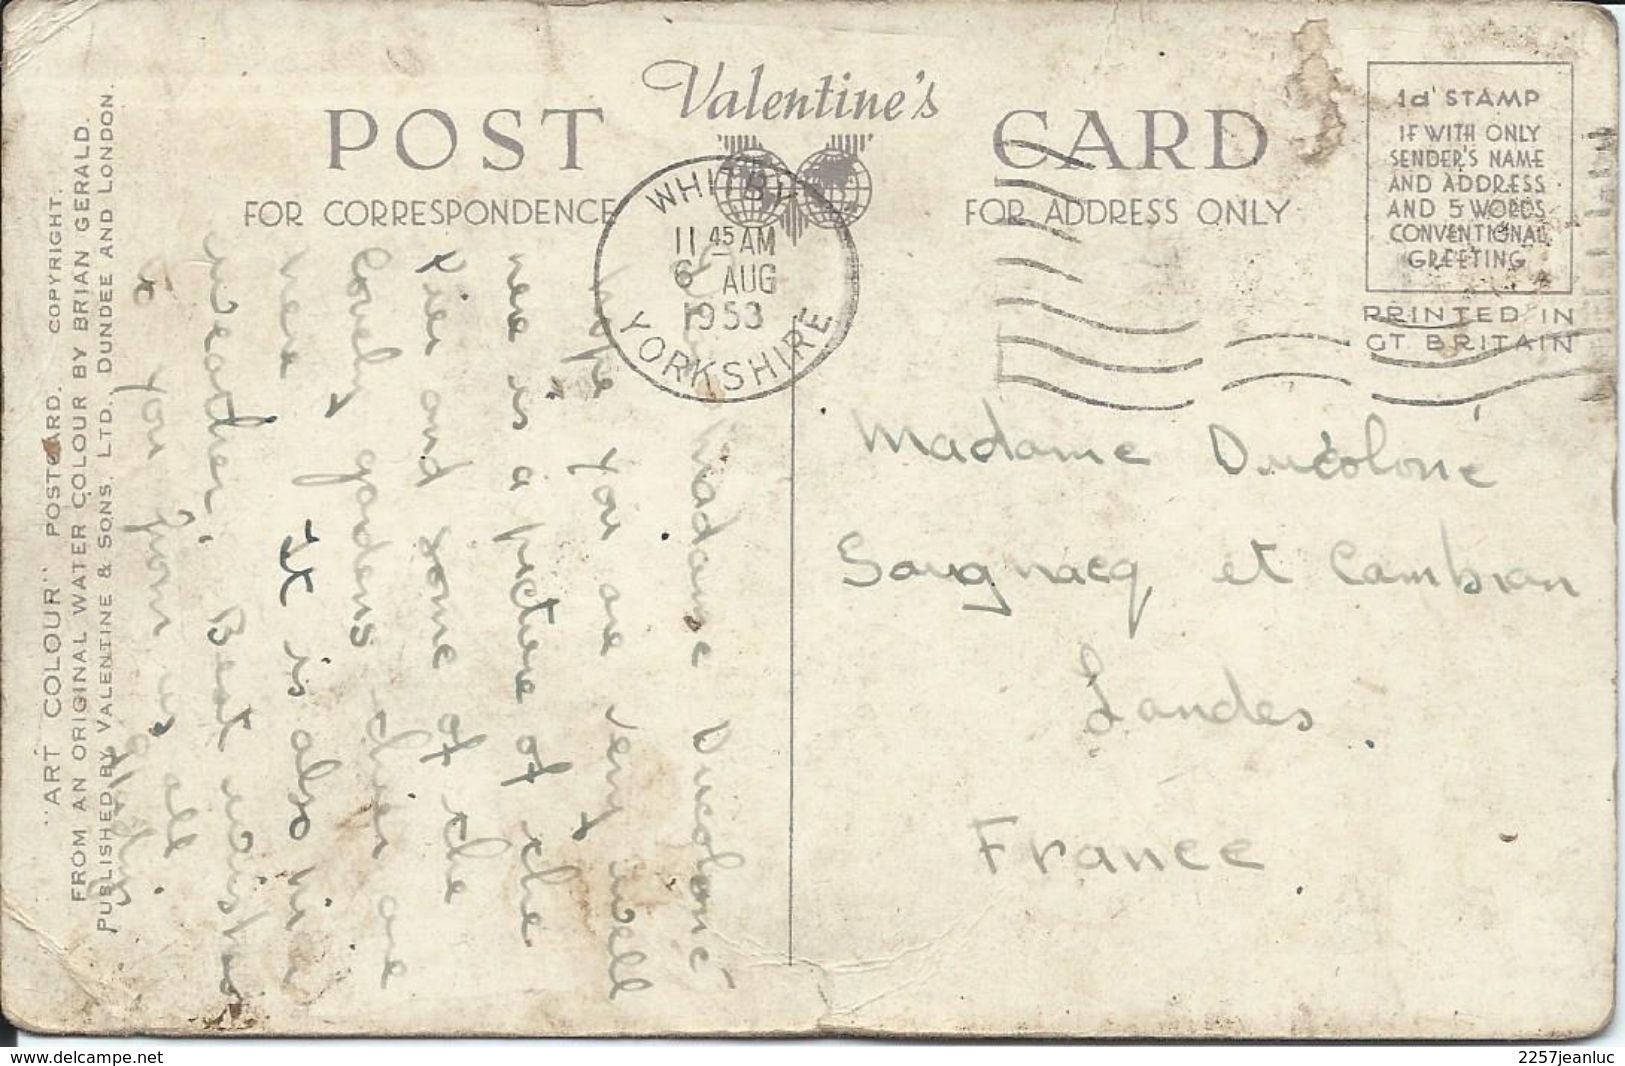 Valentine's
POST CARD
FOR CORRESPONDENCE
FOR ADDRESS ONLY
1d STAMP
IF WITH ONLY
SENDER'S NAME
AND ADDRESS
AND 5 WORDS
CONVENTIONAL
GREETING
PRINTED IN
GT BRITAIN
WHITBY
11 45 AM
6 AUG
1953
YORKSHIRE
"ART COLOUR" POSTCARD. COPYRIGHT.
FROM AN ORIGINAL WATER COLOUR BY BRIAN GERALD.
PUBLISHED BY VALENTINE & SONS, LTD. DUNDEE AND LONDON.
Madame Ducoloné
hope you are very well
here is a picture of the
Pier and some of the
lovely gardens
here. It is also
weather, Best wishes
to you from us all
Madame Ducoloné
Saugnacq et Cambran
Landes.
France.
2257jeanluc
www.delcampe.net